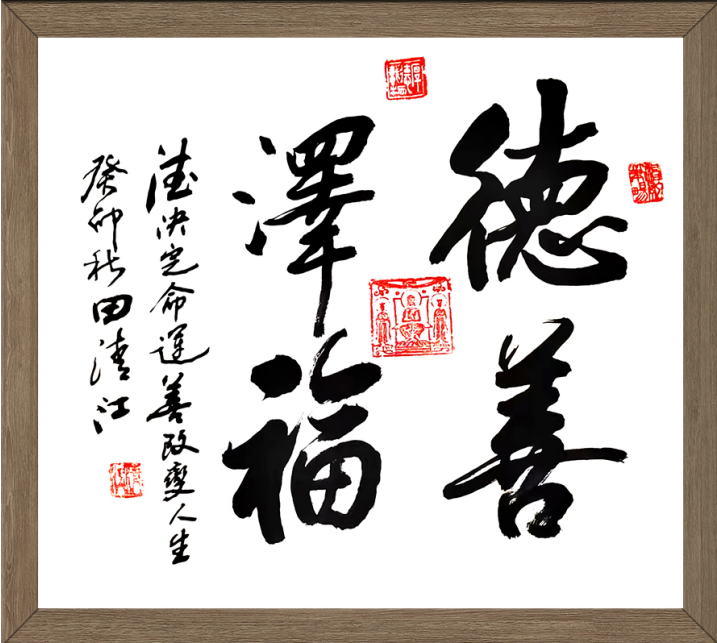 德善
澤福
德決定命運善改變人生
癸卯秋田清江